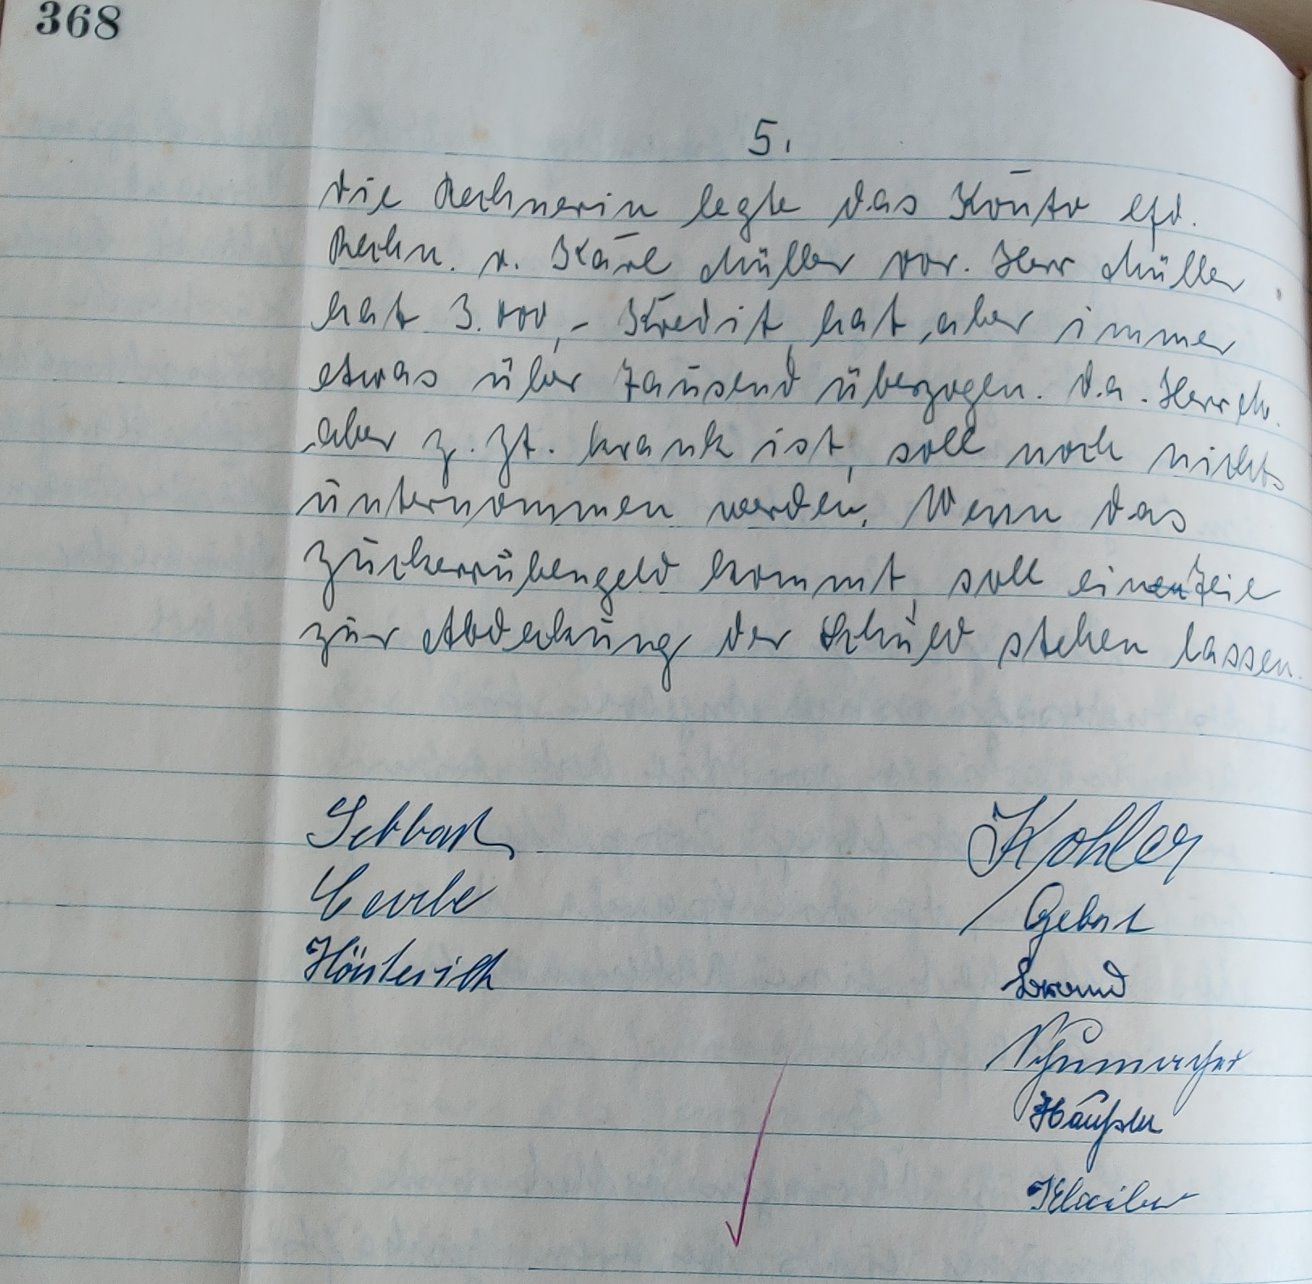 368
5.
Die Rechnerin legte das Konto lfd.
Rechn. v. Karl Müller vor. Herr Müller
hat 3.000,- Kredit, hat aber immer
etwas über Tausend überzogen. Da. Herr M.
aber z. Zt. krank ist, soll noch nichts
unternommen werden. Wenn das
Zuckerrübengeld kommt, soll ein Teil
zur Abdeckung der Schuld stehen lassen.
Kohler
Gebert
Schumacher
Häußler
Klaiber